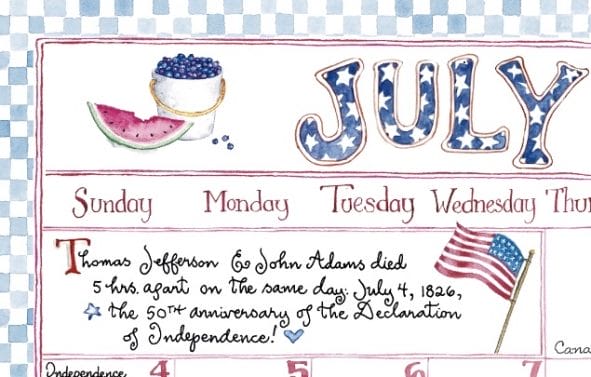 JULY
Sunday Monday Tuesday Wednesday Thur
Thomas Jefferson & John Adams died
5 hrs. apart on the same day: July 4, 1826,
the 50TH anniversary of the Declaration
of Independence!
Cana
Independence 4 5 6 7